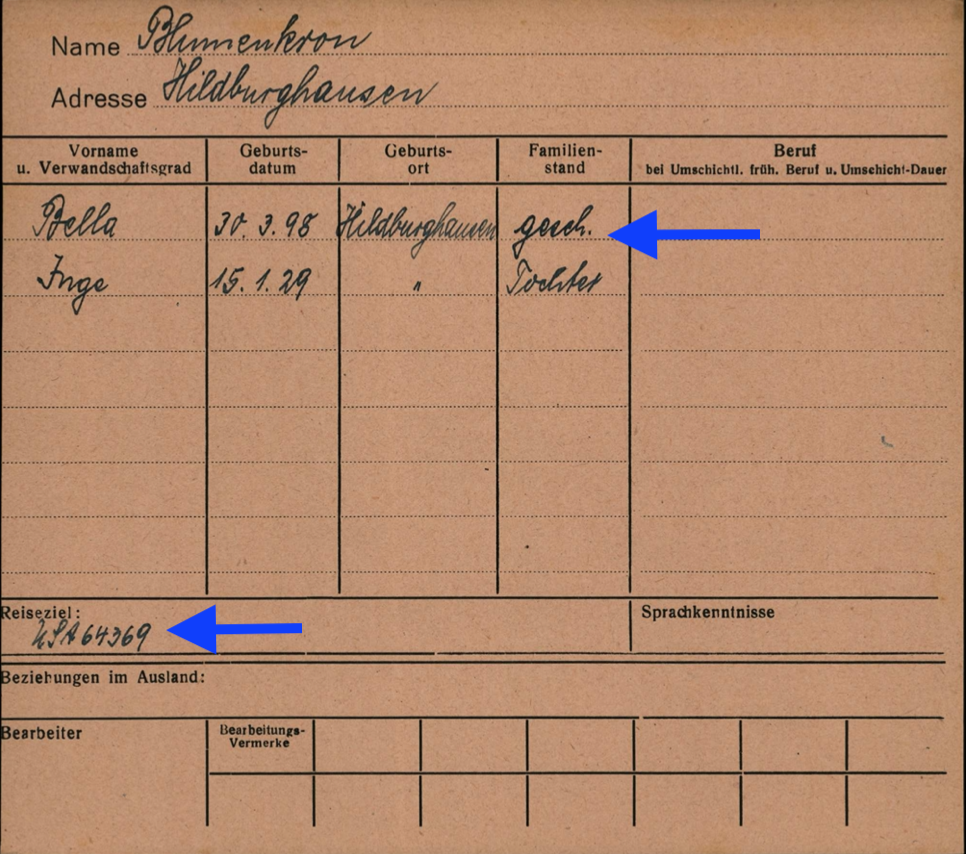 Name Blumenkron
Adresse Hildburghausen
Vorname u. Verwandschaftsgrad
Geburts-datum
Geburts-ort
Familien-stand
Beruf
bei Umschichtl. früh. Beruf u. Umschicht-Dauer
Bella 30. 3. 98 Hildburghausen gesch.
Inge 15. 1. 29 " Tochter
Reiseziel:
USA 64369
Sprachkenntnisse
Beziehungen im Ausland:
Bearbeiter
Bearbeitungs-
Vermerke